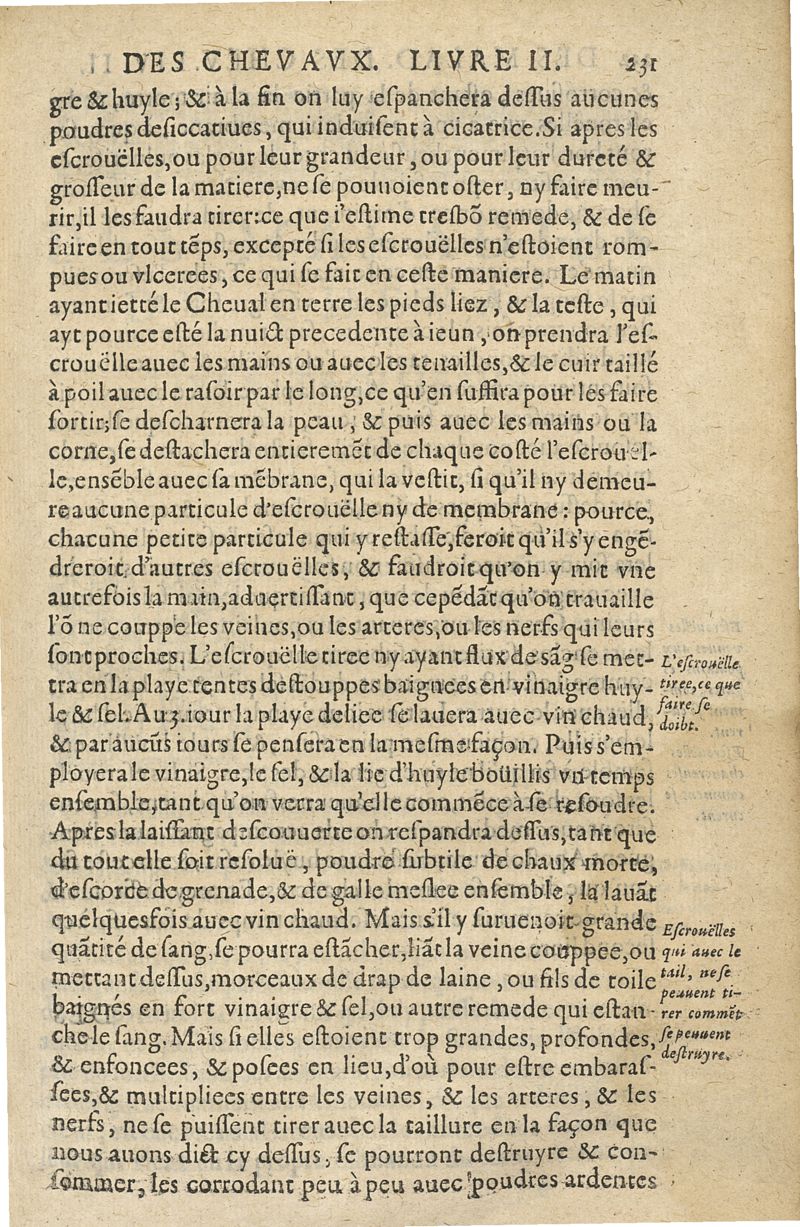 DES CHEVAVX. LIVRE II. 231
gre & huyle; & à la fin on luy espanchera dessus aucunes
poudres desiccatiues, qui induisent à cicatrice. Si apres les
escrouëlles, ou pour leur grandeur, ou pour leur dureté &
grosseur de la matiere, ne se pouuoient oster, ny faire meu-
rir, il les faudra tirer: ce que i'estime tresbõ remede, & de se
faire en tout tẽps, excepté si les escrouëlles n'estoient rom-
pues ou vlcerees, ce qui se fait en ceste maniere. Le matin
ayant ietté le Cheual en terre les pieds liez, & la teste, qui
ayt pource esté la nuict precedente à ieun, on prendra l'es-
crouëlle auec les mains ou auec les tenailles, & le cuir taillé
à poil auec le rasoir par le long, ce qu'en suffira pour les faire
sortir; se descharnera la peau, & puis auec les mains ou la
corne, se destachera entieremẽt de chaque costé l'escrouël-
le, ensẽble auec sa mẽbrane, qui la vestit, si qu'il ny demeu-
re aucune particule d'escrouëlle ny de membrane: pource,
chacune petite particule qui y restasse, feroit qu'il s'y engẽ-
dreroit d'autres escrouëlles, & faudroit qu'on y mit vne
autrefois la main, aduertissant, que cepẽdãt qu'on trauaille
l'õ ne couppe les veines, ou les arteres, ou les nerfs qui leurs
sont proches. L'escrouëlle tiree ny ayant flux de sãg se met-
tra en la playe tentes destouppes baignees en vinaigre huy-
le & sel. Au 3. iour la playe deliee se lauera auec vin chaud,
& par aucũs iours se pensera en la mesme façon. Puis s'em-
ployera le vinaigre, le sel, & la lie d'huyle boüillis vn temps
ensemble, tant qu'on verra qu'elle commẽce à se resoudre.
Apres la laissant descouuerte on respandra dessus, tant que
du tout elle soit resoluë, poudre subtile de chaux morte,
d'escorce de grenade, & de galle meslee ensemble, la lauãt
quelquesfois auec vin chaud. Mais s'il y suruenoit grande
quãtité de sang, se pourra estãcher, liãt la veine couppee, ou
mettant dessus, morceaux de drap de laine, ou fils de toile
baignés en fort vinaigre & sel, ou autre remede qui estan-
che le sang. Mais si elles estoient trop grandes, profondes,
& enfoncees, & posees en lieu, d'où pour estre embaras-
sees, & multipliees entre les veines, & les arteres, & les
nerfs, ne se puissent tirer auec la taillure en la façon que
nous auons dict cy dessus, se pourront destruyre & con-
sommer, les corrodant peu à peu auec poudres ardentes
L'escrouëlle
tiree, ce que
faire se
doibt.
Escrouëlles
qui auec le
tail, ne se
peuuent ti-
rer commẽt
se peuuent
destruyre.